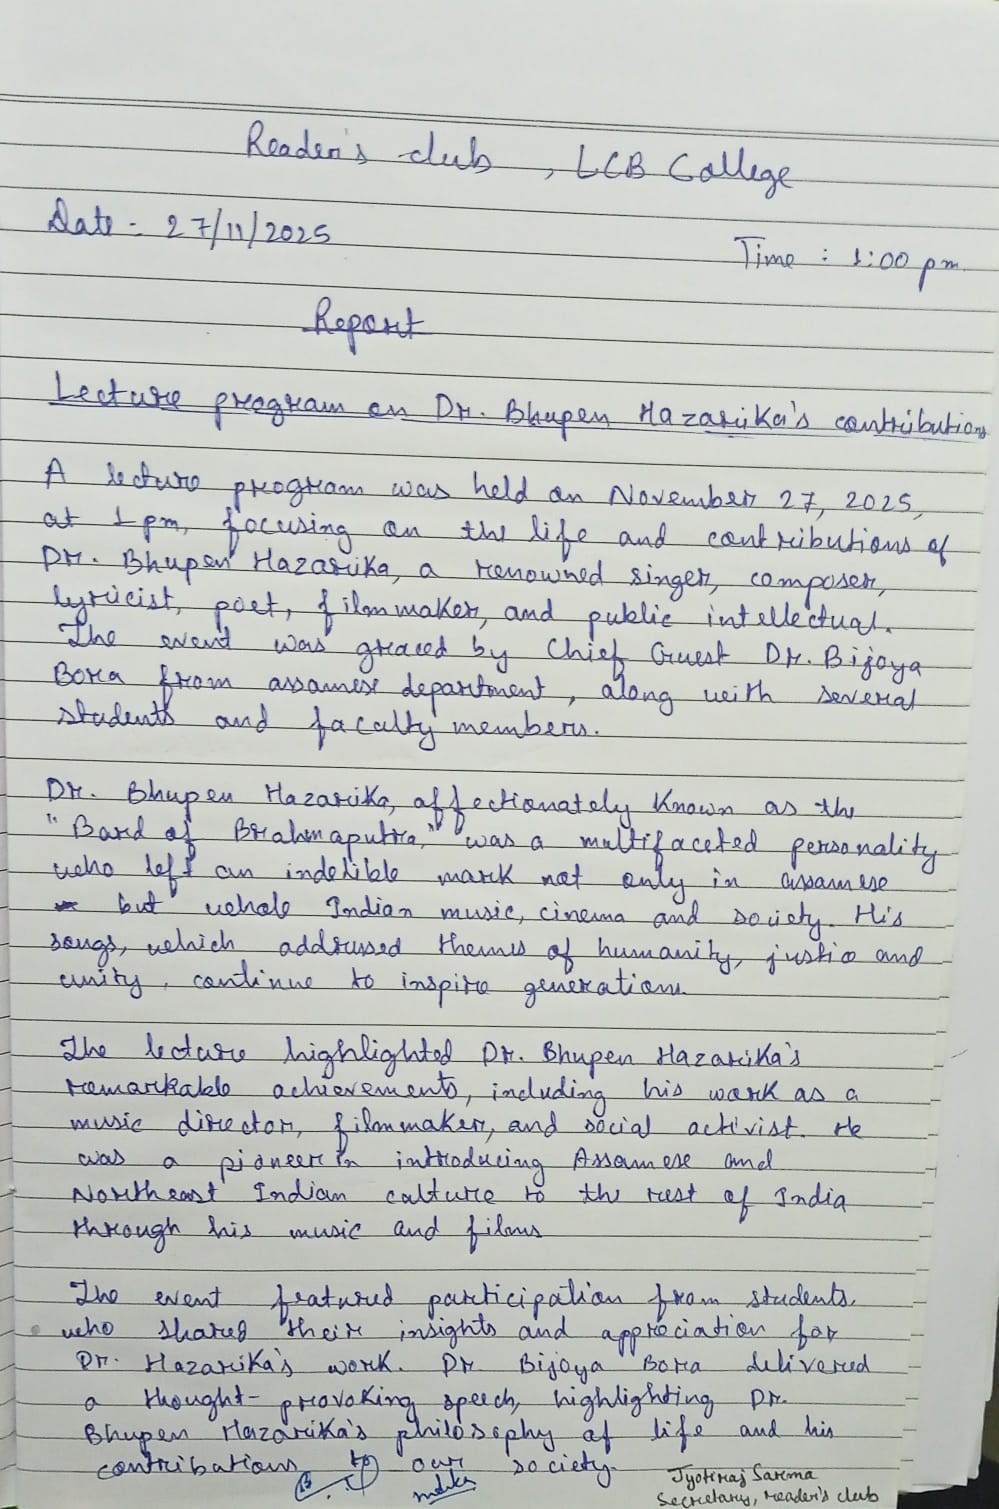 Reader's club, LCB College
Date - 27/11/2025
Time : 1:00 pm.
Report
Lecture program on Dr. Bhupen Hazarika's contributions
A lecture program was held on November 27, 2025,
at 1 pm, focusing on the life and contributions of
Dr. Bhupen Hazarika, a renowned singer, composer,
lyricist, poet, filmmaker, and public intellectual.
The event was graced by Chief Guest Dr. Bijoya
Bora from assamese department, along with several
students and faculty members.
Dr. Bhupen Hazarika, affectionately known as the
"Bard of Brahmaputra," was a multifaceted personality
who left an indelible mark not only in assamese
but whole Indian music, cinema and society. His
songs, which addressed themes of humanity, justice and
unity, continue to inspire generations.
The lecture highlighted Dr. Bhupen Hazarika's
remarkable achievements, including his work as a
music director, filmmaker, and social activist. He
was a pioneer in introducing Assamese and
Northeast Indian culture to the rest of India
through his music and films
The event featured participation from students,
who shared their insights and appreciation for
Dr. Hazarika's work. Dr. Bijoya Bora delivered
a thought-provoking speech, highlighting Dr.
Bhupen Hazarika's philosophy of life and his
contributions to our society.
Jyotiraj Sarma
Secretary, reader's club